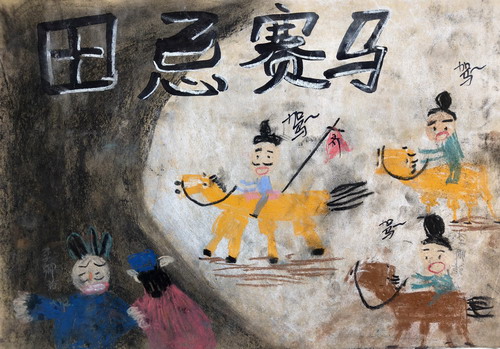 田忌赛马
驾~
驾~
齐
驾~